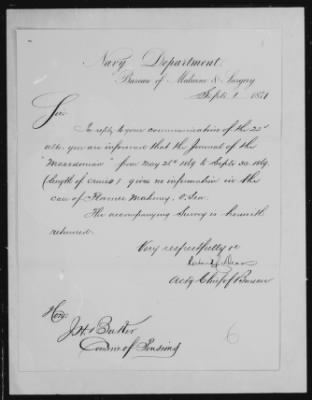 Navy Department
Bureau of Medicine & Surgery
Septr 1 1871
Sir
In reply to your communication of the 22d
ulto. you are informed that the Journal of the
"Macedonian" from May 28th 1869 to Septr 30. 1869
(length of cruise) gives no information in the
case of Mahoney, O. Sea.
The accompanying Survey is herewith
returned.
Very respectfully &c
Actg Chief of Bureau
Hon.
J. H. Baker
Comr of Pensions
6